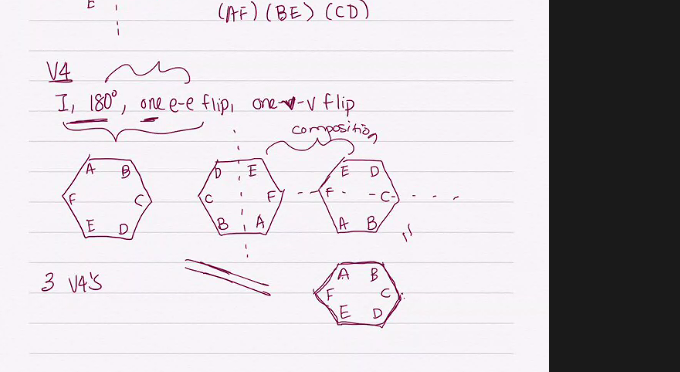 E
(AF) (BE) (CD)
V4
I, 180°, one e-e flip, one v-v flip
composition
A B
F C
E D
D E
C F
B A
E D
F C
A B
3 V4'S
A B
F C
E D